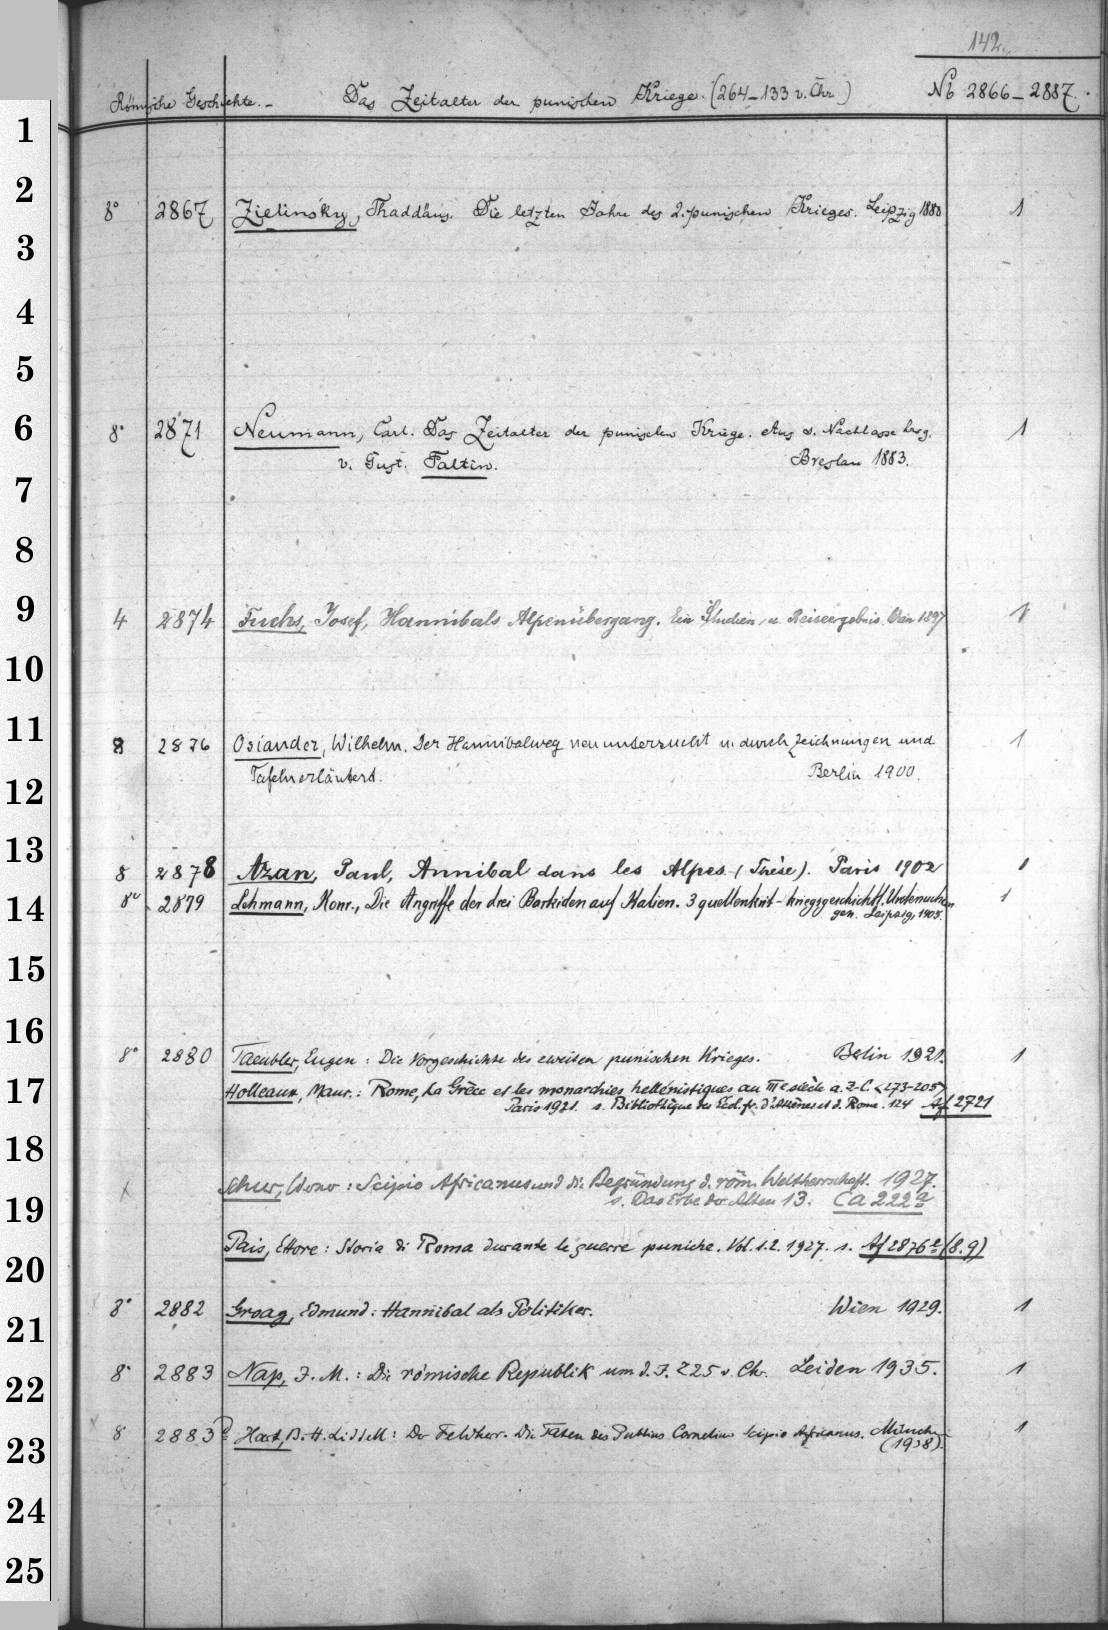 142.
Römische Geschichte. - Das Zeitalter der punischen Kriege. (264-133 v. Chr.) No 2866-2887.
1
2
8° 2867 Zielinsky, Thaddäus. Die letzten Jahre des 2. punischen Krieges. Leipzig 1880 1
3
4
5
6
8° 2871 Neumann, Carl. Das Zeitalter der punischen Kriege. Aus d. Nachlasse hrsg. 1
v. Gust. Faltin. Breslau 1883.
7
8
9
4 2874 Fuchs, Josef, Hannibals Alpenübergang. Ein Studien- u. Reiseergebnis. Wien 1897 1
10
11
8 2876 Osiander, Wilhelm. Der Hannibalweg neu untersucht u. durch Zeichnungen und 1
Tafeln erläutert. Berlin 1900.
12
13
8 2878 Azan, Paul, Annibal dans les Alpes. (Thèse). Paris 1902 1
14
8° 2879 Lehmann, Konr., Die Angriffe der drei Barkiden auf Italien. 3 quellenkrit-kriegsgeschichtl. Untersuchun 1
gen. Leipzig, 1905.
15
16
8° 2880 Taeubler, Eugen: Die Vorgeschichte des zweiten punischen Krieges. Berlin 1921. 1
17
Holleaux, Maur.: Rome, La Grèce et les monarchies hellénistiques au IIIe siècle a. J.-C. (273-205)
Paris 1921. s. Bibliothèque des Écol. fr. d'Athènes et d. Rome. 124 Af 2721
18
Schur, Werner: Scipio Africanus und die Begründung d. röm. Weltherrschaft. 1927.
19
s. Das Erbe der Alten 13. Ca 222a
Pais, Ettore: Storia di Roma durante le guerre puniche. Vol. 1.2. 1927. s. Af 2876a (8.9)
20
8° 2882 Groag, Edmund: Hannibal als Politiker. Wien 1929. 1
21
8° 2883 Nap, J. M.: Die römische Republik um d. J. 225 v. Chr. Leiden 1935. 1
22
8 2883a Hart, B. H. Liddell: Der Feldherr. Die Taten des Publius Cornelius Scipio Africanus. München 1
(1938).
23
24
25